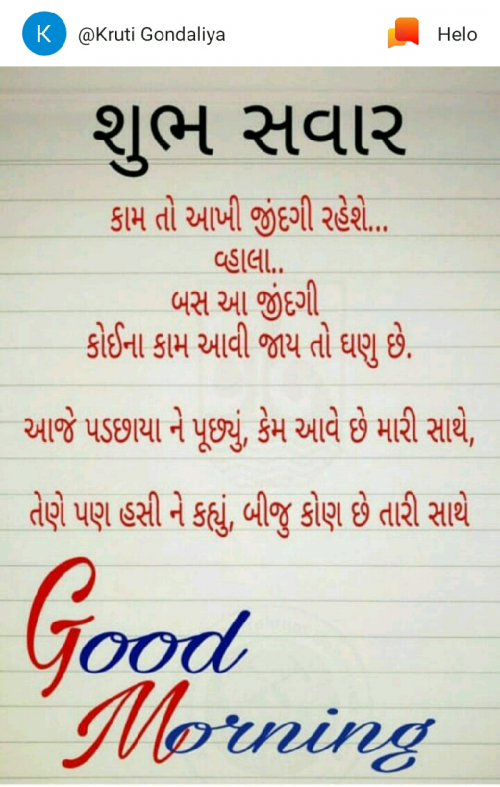 K @Kruti Gondaliya Helo
શુભ સવાર
કામ તો આખી જીંદગી રહેશે...
વ્હાલા..
બસ આ જીંદગી
કોઈના કામ આવી જાય તો ઘણુ છે.
આજે પડછાયા ને પૂછ્યું, કેમ આવે છે મારી સાથે,
તેણે પણ હસી ને કહ્યું, બીજુ કોણ છે તારી સાથે
Good
Morning